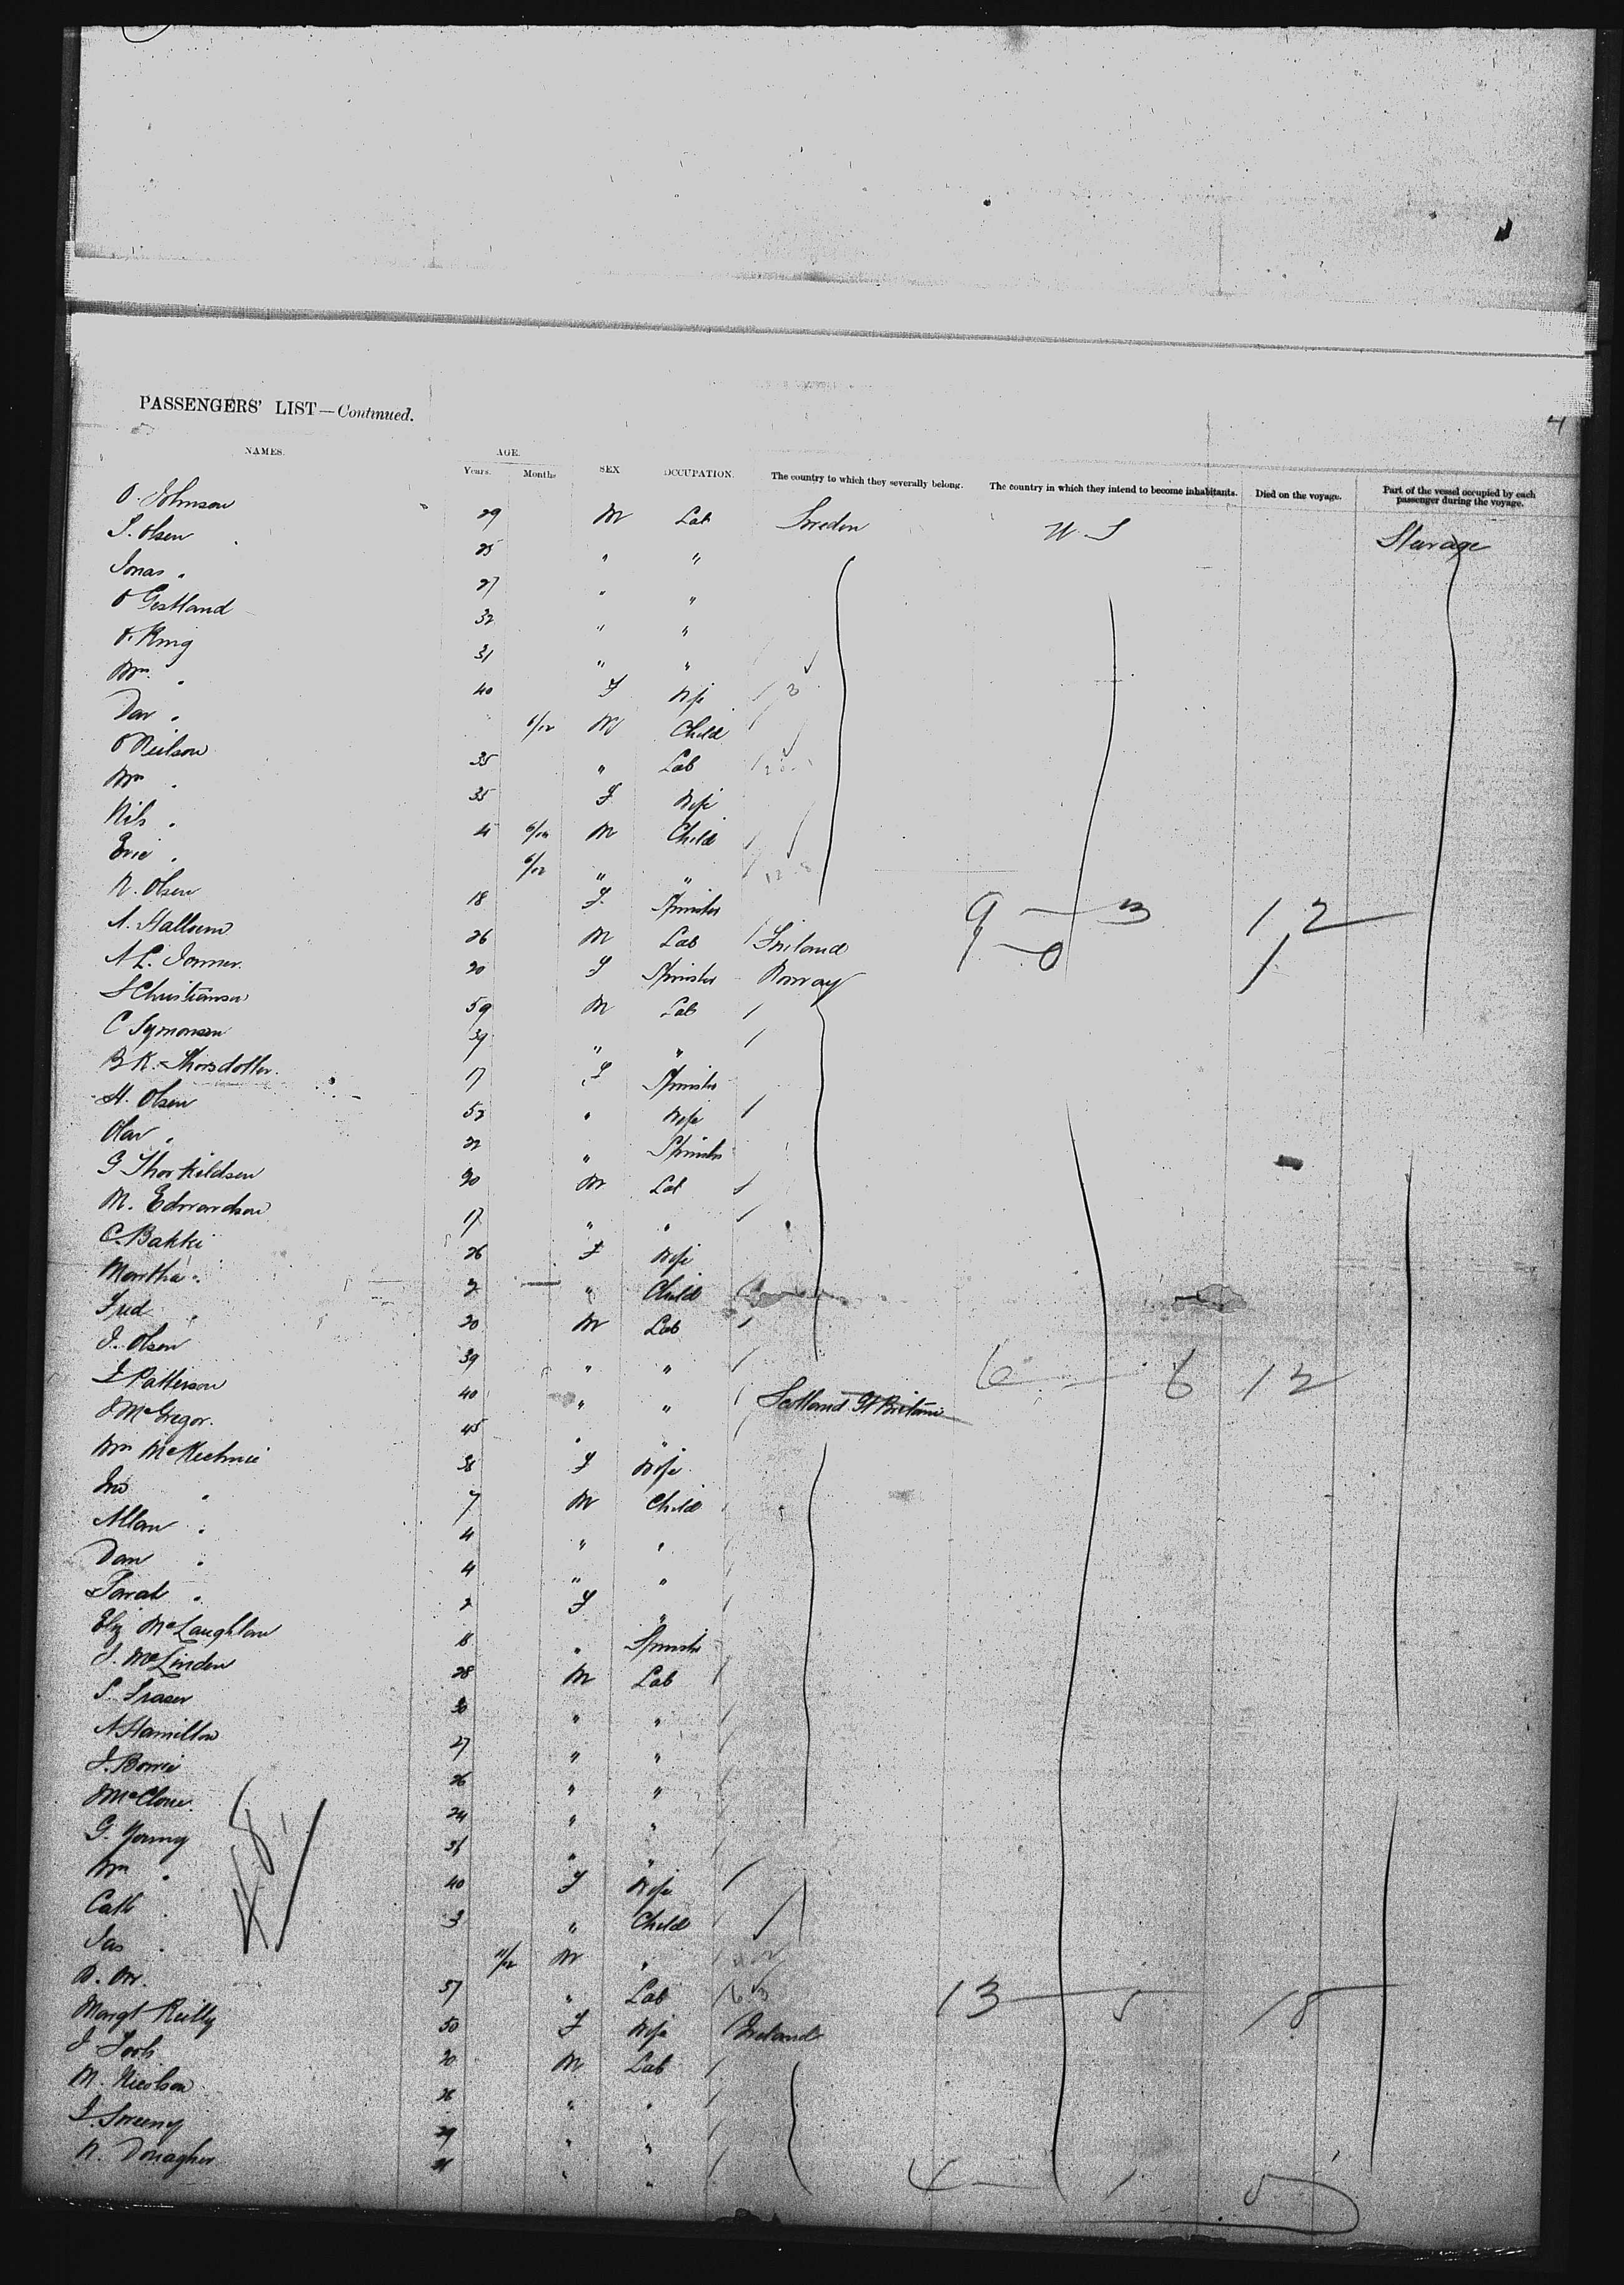 4
PASSENGERS' LIST—Continued.
NAMES. AGE. Years. Months SEX OCCUPATION. The country to which they severally belong. The country in which they intend to become inhabitants. Died on the voyage. Part of the vessel occupied by each passenger during the voyage.
O. Johnson 29 M Lab Sweden U S Sterage
S. Olsen 25 " "
Jonas " 27 " "
O Gestland 32 " "
O. King 31 " "
Mrs. " 40 F Wife
Dav " 6/12 M Child
O Neilson 35 " Lab
Mrs " 35 F Wife
Nils " 4 6/12 M Child
Eric " 6/12 " "
N. Olsen 18 F Spinster 9 — 3 12
A. 26 M Lab 1 — 0 1
A L. 20 F Spinster Norway
S Christiansen 59 M Lab
C Symonsen 39 " "
B K. Thorsdotter 17 F Spinster
H. Olsen 52 " Wife
Olav " 22 " Spinster
G Thorkildsen 30 M Lab
M. Edwardson 17 " "
C. Bakki 26 F Wife
Martha " 2 " Child
Fred " 20 M Lab
J. Olsen 39 " " 6 — 6 12
J Patterson 40 " " Scotland Gt Britain
J McGregor. 45 " "
Mrs McKechnie 38 F Wife
Jno " 7 M Child
Allan " 4 " "
Dan " 4 " "
Sarah " 2 F "
Eliz McLaughlan 18 " Spinster
J. McLinden 28 M Lab
S. Fraser 30 " "
A Hamilton 27 " "
J. Bowie 26 " "
24 " "
G. Young 36 " "
Mrs " 40 F Wife
Cath " 3 " Child
48
Jas " 11/12 M "
57 " Lab 13 — 5 18
Margt Reilly 50 F Wife Ireland
J 20 M Lab
M. Nicolson 26 " "
J. Sweeny 29 " "
N. Donagher 21 " " 4 — 1 5